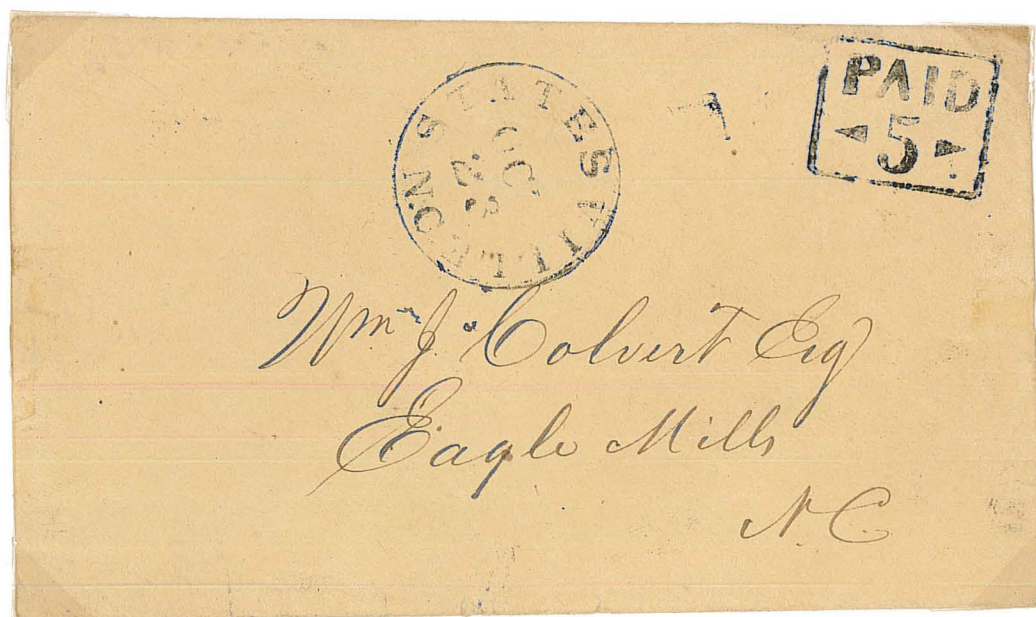 STATESVILLE N.C
OC
22
PAID
5
Wm. J. Colvert Esq
Eagle Mills
N.C.